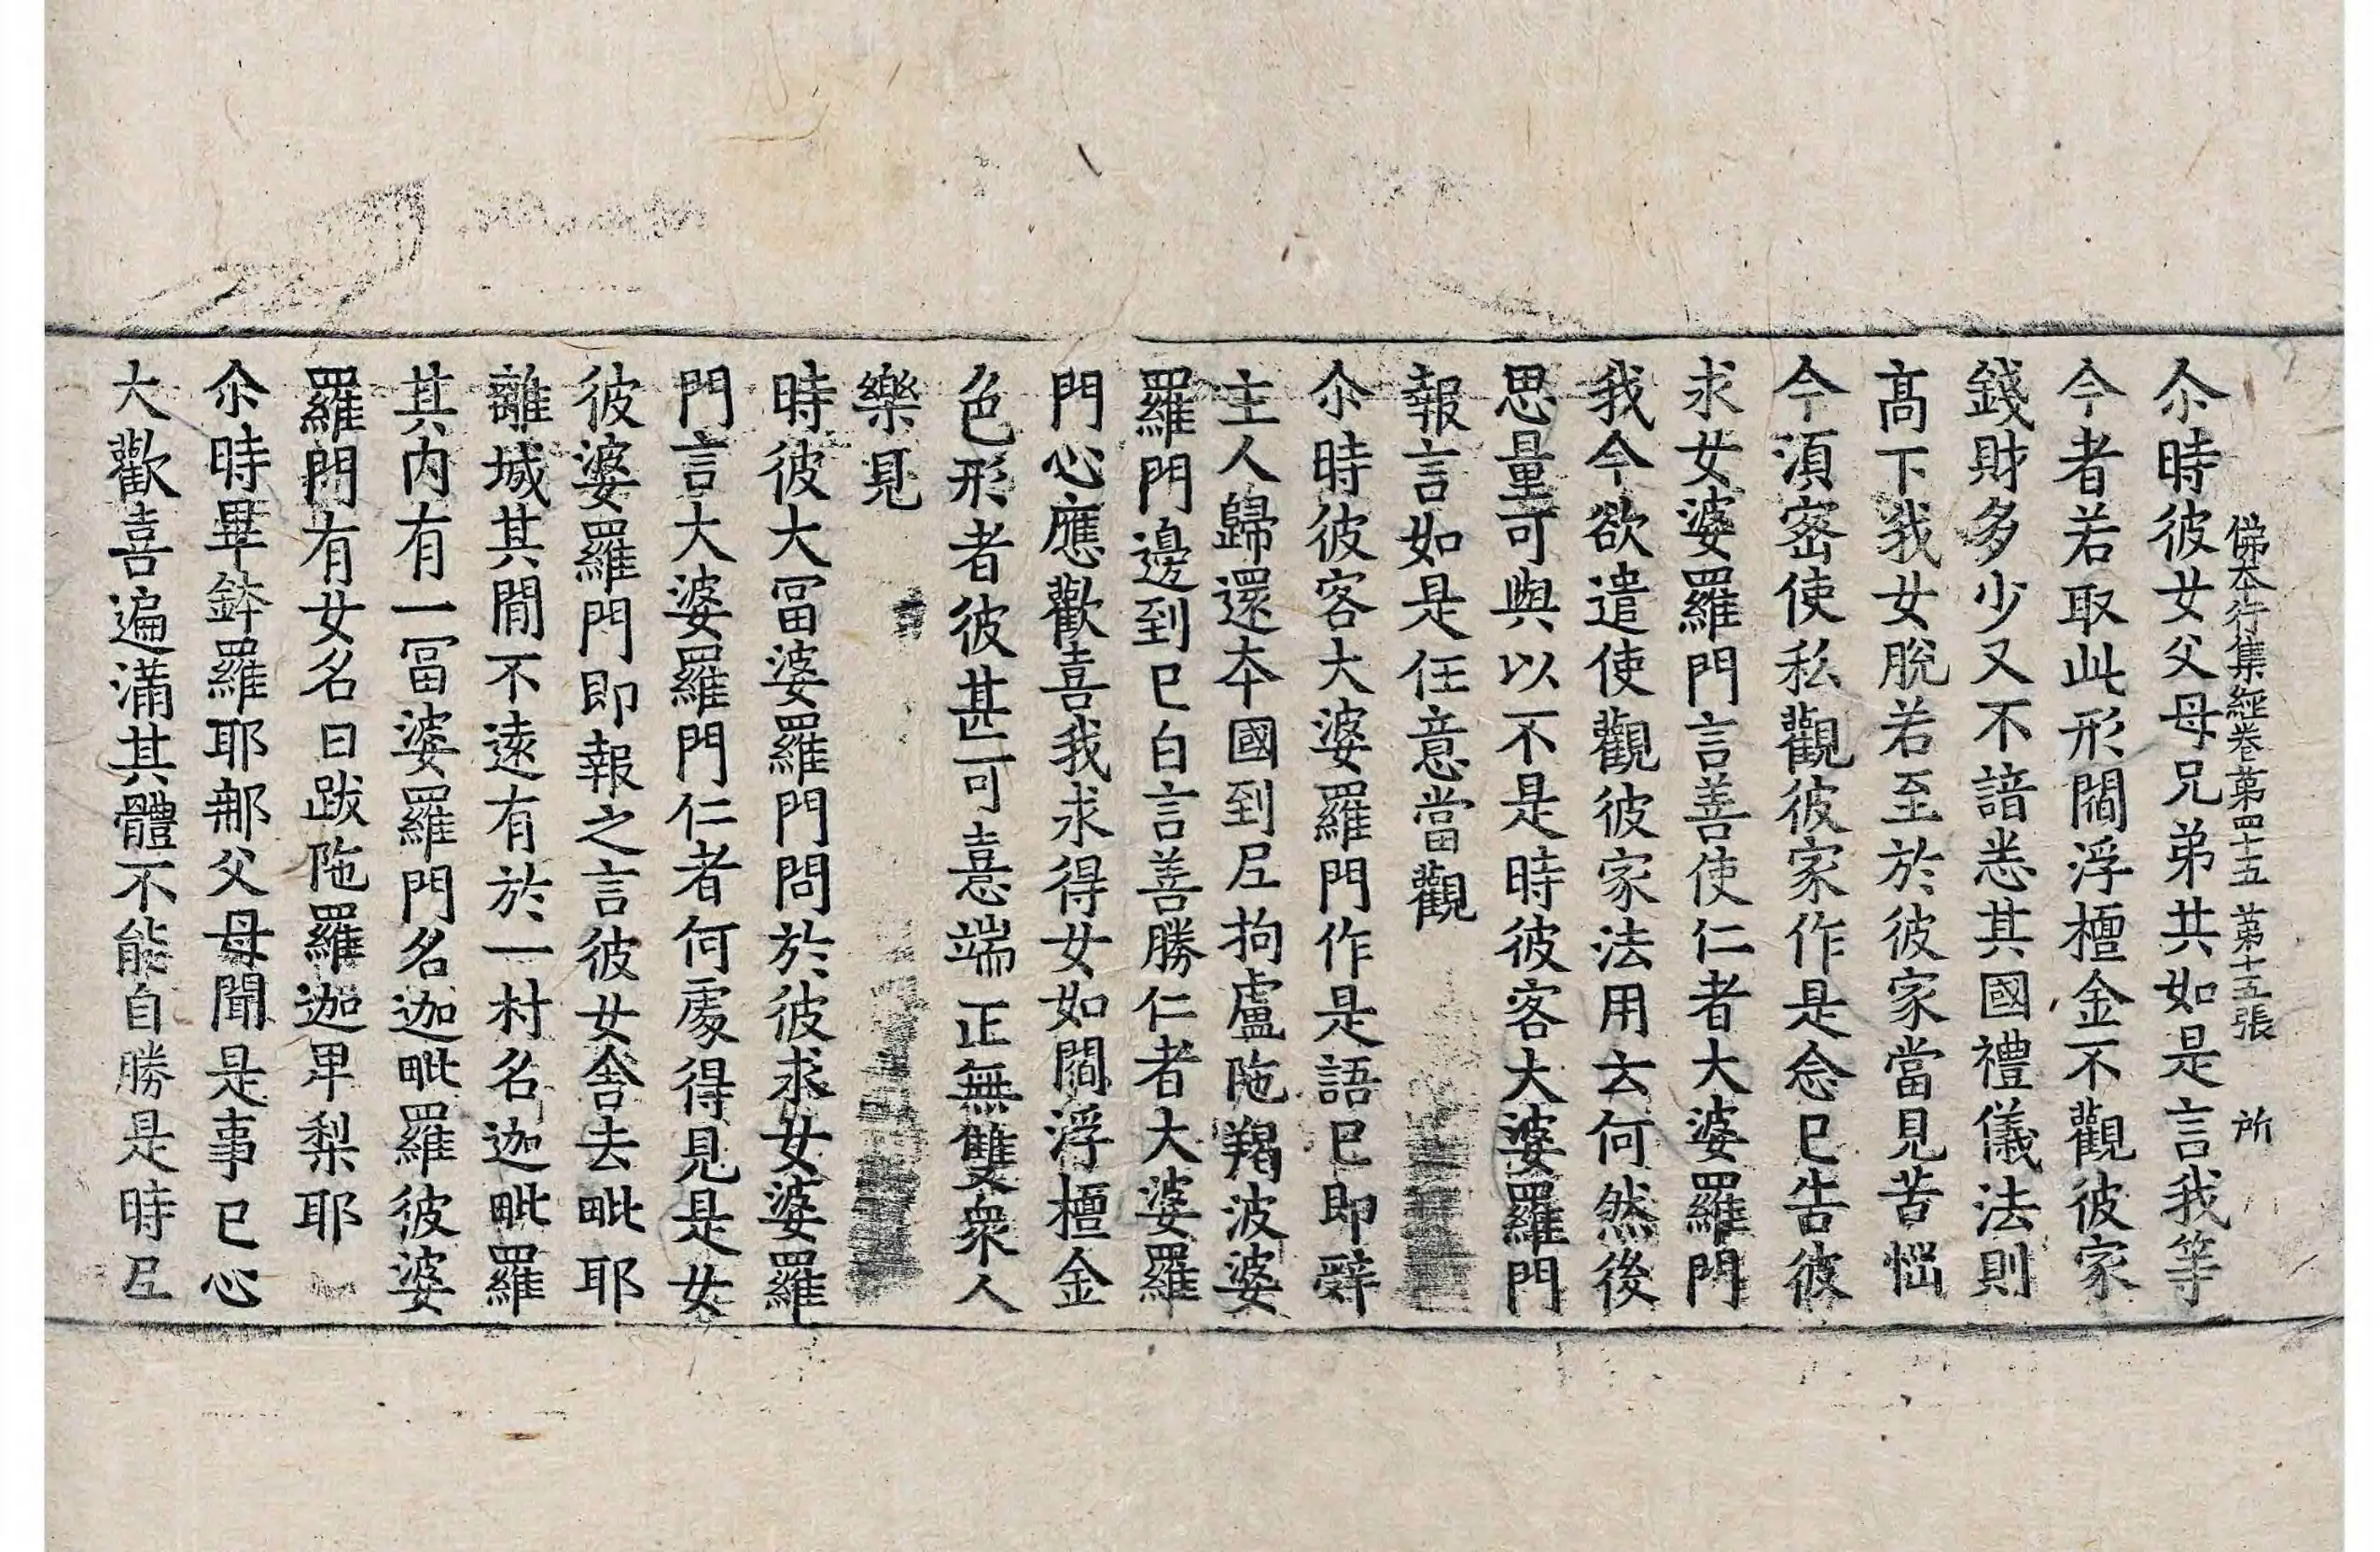 佛本行集經卷第四十五 第十五張 所
尒時彼女父母兄弟共如是言我等
今者若取此形閻浮檀金不觀彼家
錢財多少又不諳悉其國禮儀法則
高下我女脫若至於彼家當見苦惱
今須密使私觀彼家作是念已告彼
求女婆羅門言善使仁者大婆羅門
我今欲遣使觀彼家法用云何然後
思量可與以不是時彼客大婆羅門
報言如是任意當觀
尒時彼客大婆羅門作是語已即辭
主人歸還本國到尼拘盧陁羯波婆
羅門邊到已白言善勝仁者大婆羅
門心應歡喜我求得女如閻浮檀金
色形者彼甚可憙端正無雙衆人
樂見
時彼大冨婆羅門問於彼求女婆羅
門言大婆羅門仁者何處得見是女
彼婆羅門即報之言彼女舍去毗耶
離城其間不遠有於一村名迦毗羅
其內有一冨婆羅門名迦毗羅彼婆
羅門有女名曰跋陁羅迦卑梨耶
尒時畢鉢羅耶那父母聞是事已心
大歡喜遍滿其體不能自勝是時尼